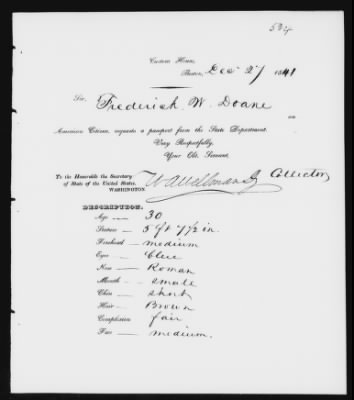 534
Custom House,
Boston, Dec 27 1841
Sir,
Frederick W. Doane
an
American Citizen, requests a passport from the State Department.
Very Respectfully,
Your Obt. Servant,
To the Honorable the Secretary
of State of the United States,
WASHINGTON.
Collector
DESCRIPTION.
Age 30
Stature 5 ft 7 1/2 in.
Forehead medium
Eyes Blue
Nose Roman
Mouth small
Chin short
Hair Brown
Complexion fair
Face medium.